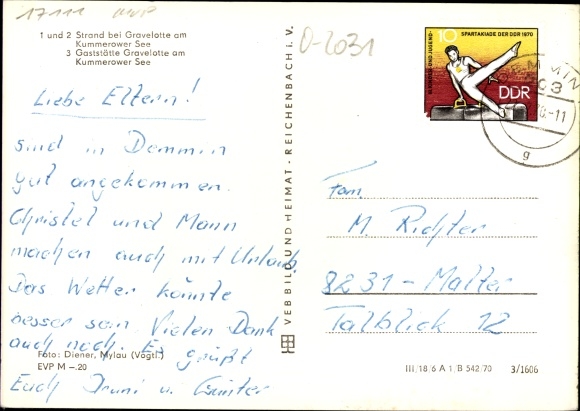 17111 MVP
O-2031
1 und 2 Strand bei Gravelotte am
Kummerower See
3 Gaststätte Gravelotte am
Kummerower See
Liebe Eltern!
sind in Demmin
gut angekommen.
Christel und Mann
machen auch mit Urlaub.
Das Wetter könnte
besser sein. Vielen Dank
auch noch. Es grüßt
Euch u. Günter
Foto: Diener, Mylau (Vogtl.)
EVP M –.20
VEB BILD UND HEIMAT · REICHENBACH i. V.
10 SPARTAKIADE DER DDR 1970
III. KINDER- UND JUGEND-
DDR
DEMMIN
g
Fam.
M. Richter
8231 - Malter
Talblick 12
III/18/6 A 1 B 542/70
3/1606